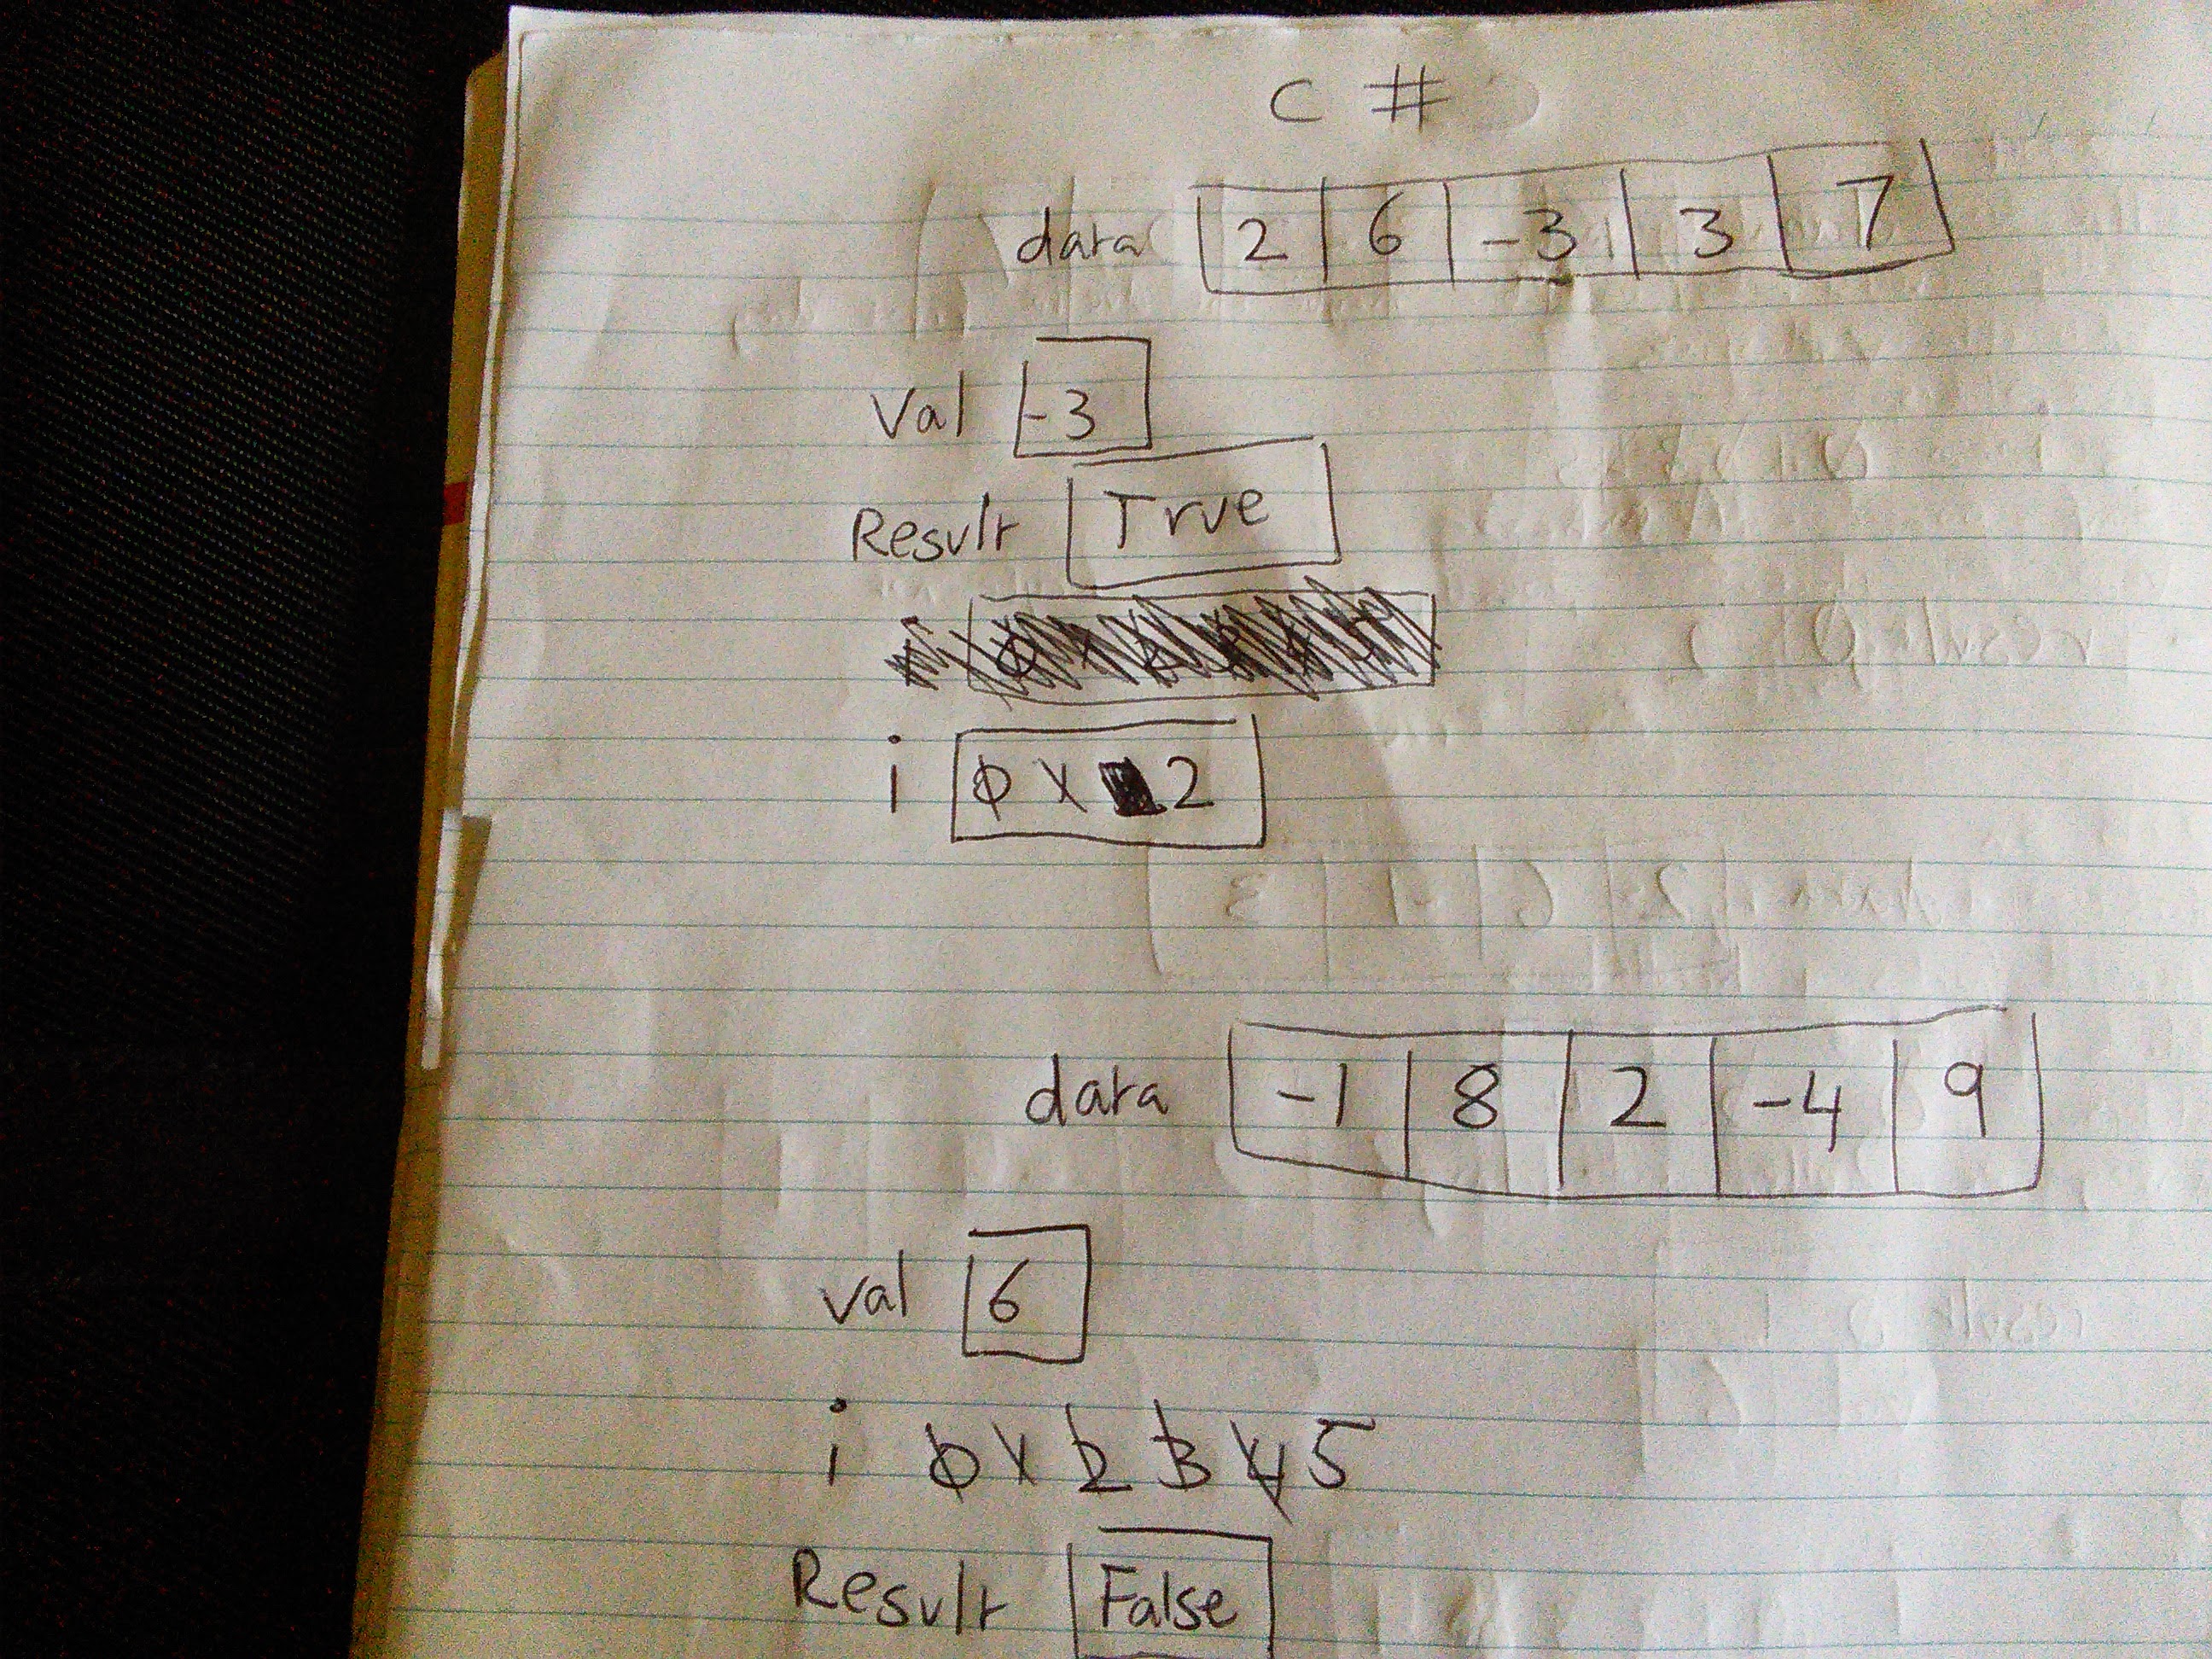 C #
data 2 6 -3 3 7
Val -3
Result True
i 0 1 2
data -1 8 2 -4 9
val 6
i 0 1 2 3 4 5
Result False